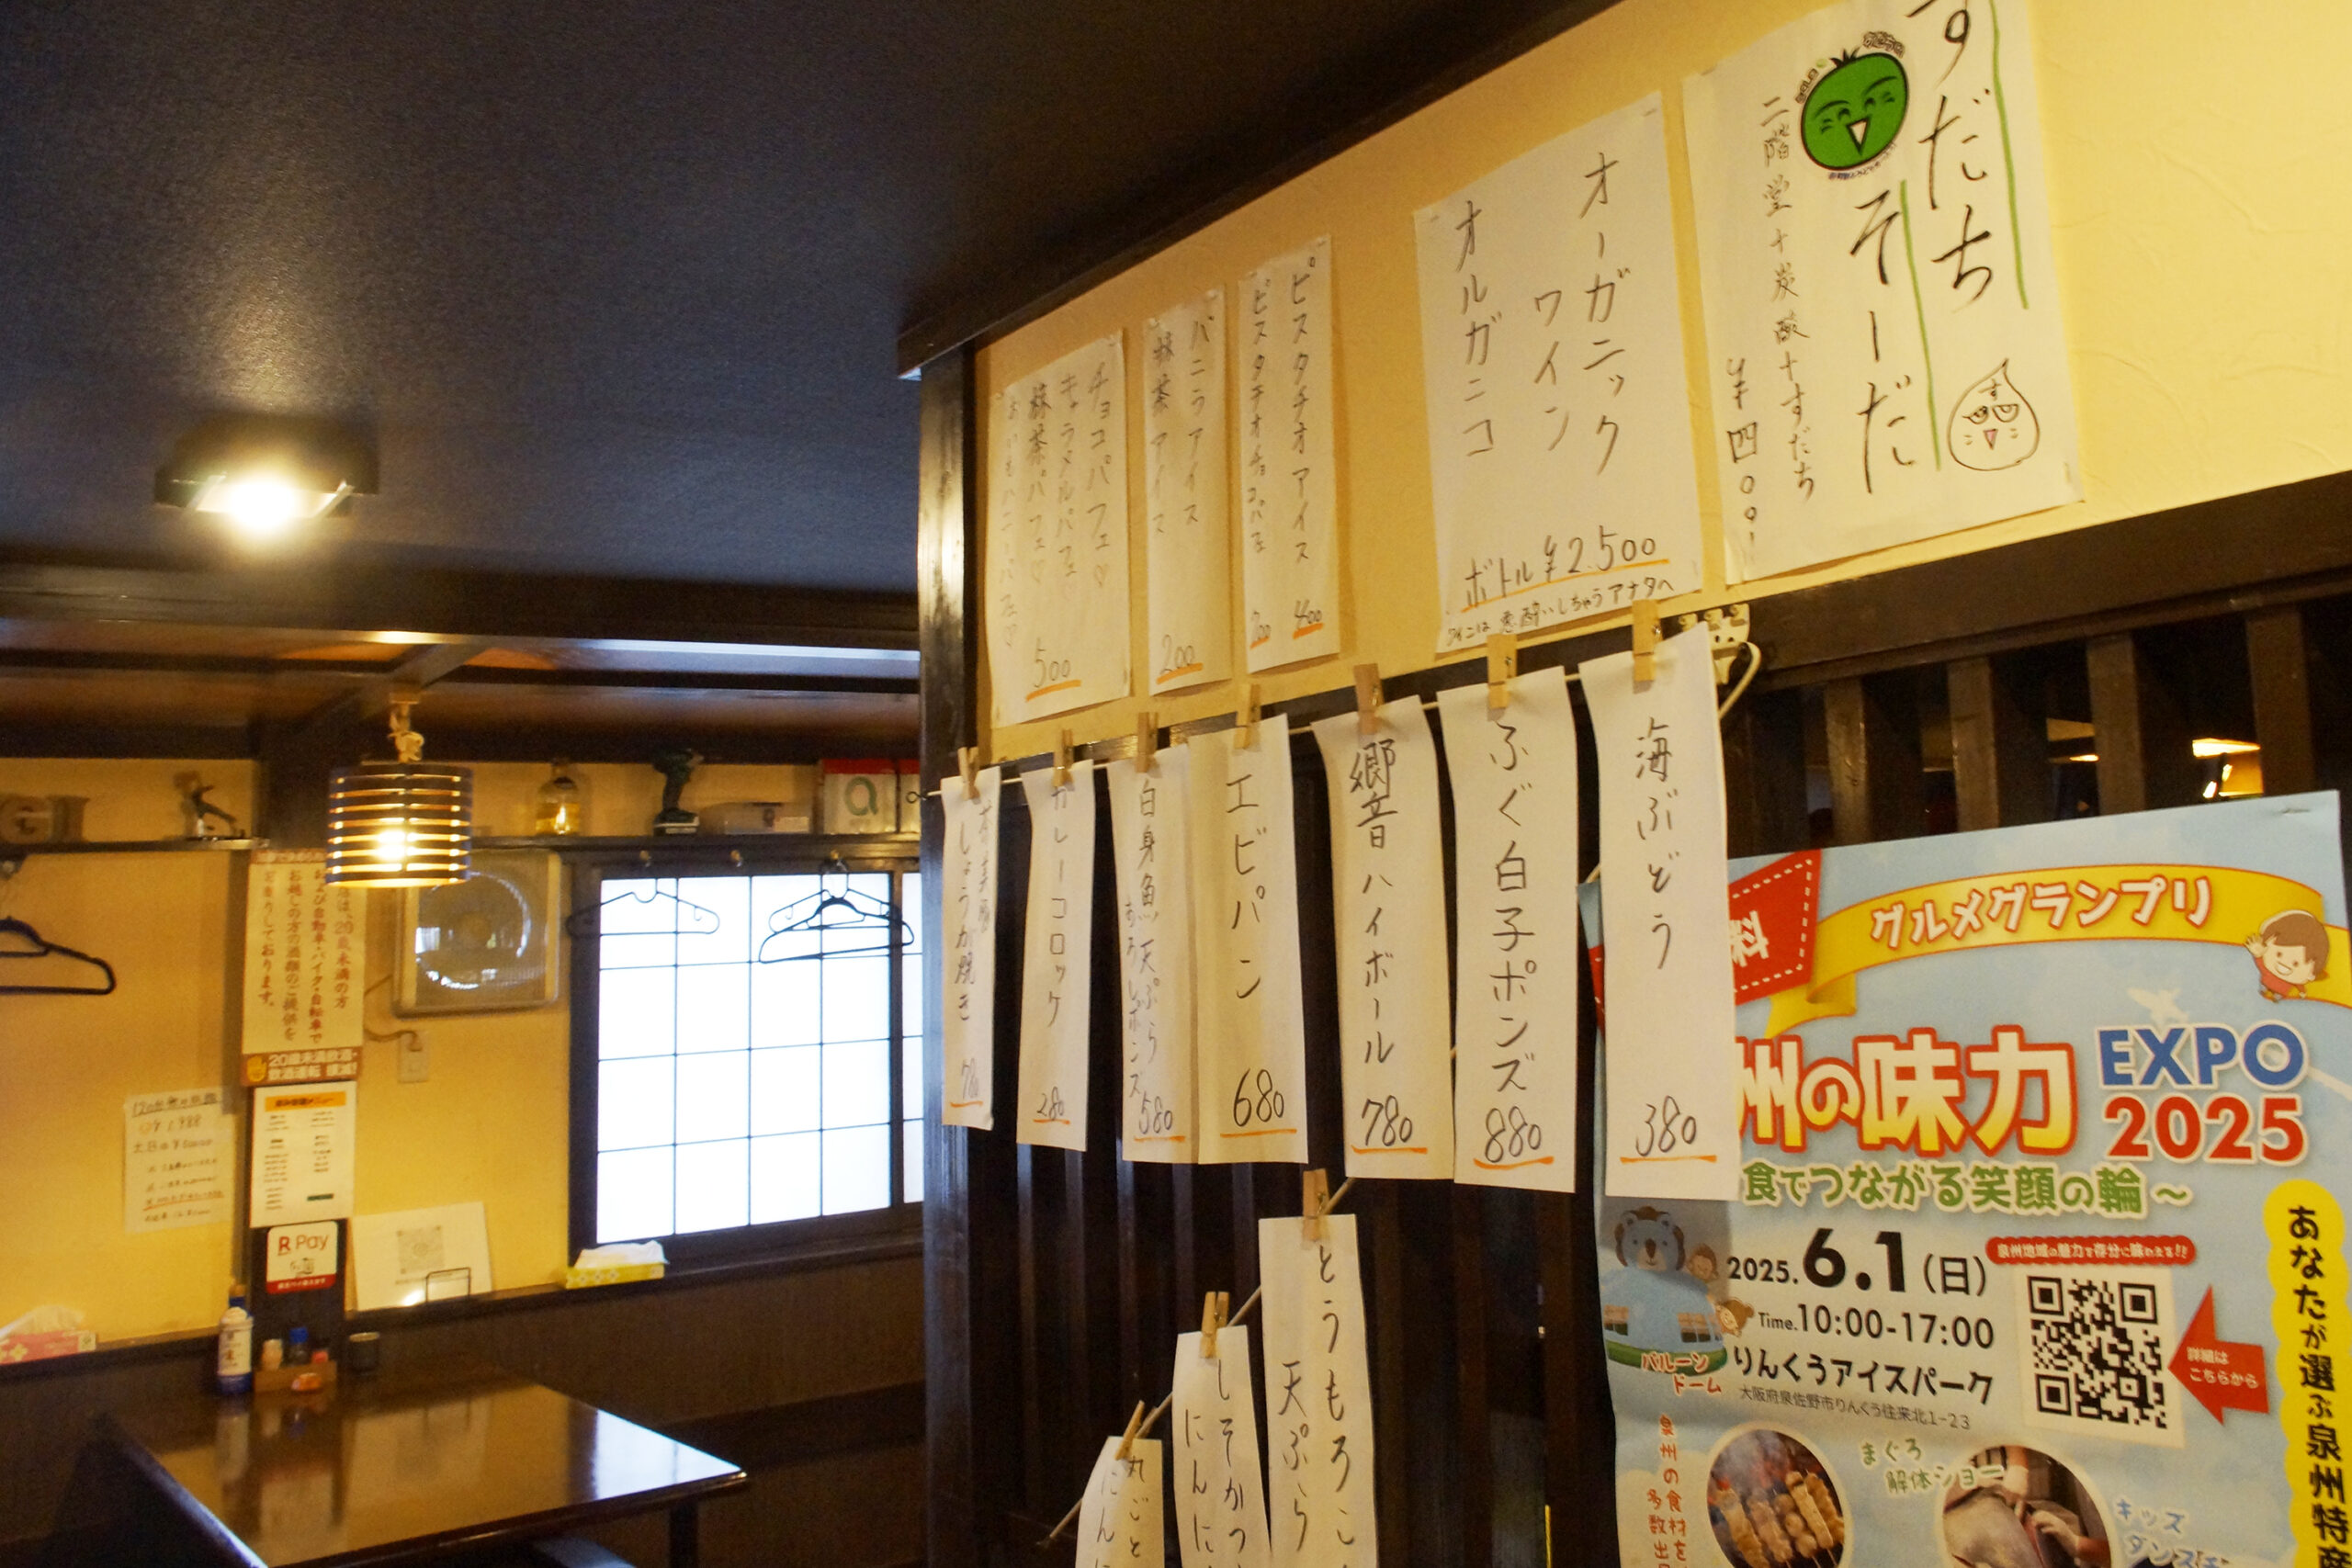 すだち
そーだ
二階堂+炭酸+すだち
¥四〇〇!
オーガニック
ワイン
オルガニコ
ボトル¥2.500
ワインは悪酔いしちゃうアナタへ
ピスタチオアイス
400
ピスタチオチョコパフェ
700
バニラアイス
抹茶アイス
200
チョコパフェ♡
キャラメルパフェ♡
抹茶パフェ♡
500
海ぶどう
380
ふぐ白子ポンズ
880
響ハイボール
780
エビパン
680
白身魚天ぷら
おろしポンズ
580
カレーコロッケ
280
しょうが焼き
780
とうもろこ
天ぷら
しそかつ
にんに
丸ごと
にん
料
グルメグランプリ
州の味力
EXPO
2025
食でつながる笑顔の輪~
2025.6.1(日)
Time.10:00-17:00
りんくうアイスパーク
大阪府泉佐野市りんくう往来北1-23
泉州地域の魅力を存分に味わえる!!
詳細は
こちらから
バルーン
ドーム
あなたが選ぶ泉州特産
泉州の食材を
多数出
まぐろ
解体ショー
キッズ
ダンス
は、20歳未満の方
および自動車・バイク・自転車で
お越しの方の酒類のご提供を
お断りしております。
20歳未満飲酒・
飲酒運転 撲滅!
R Pay